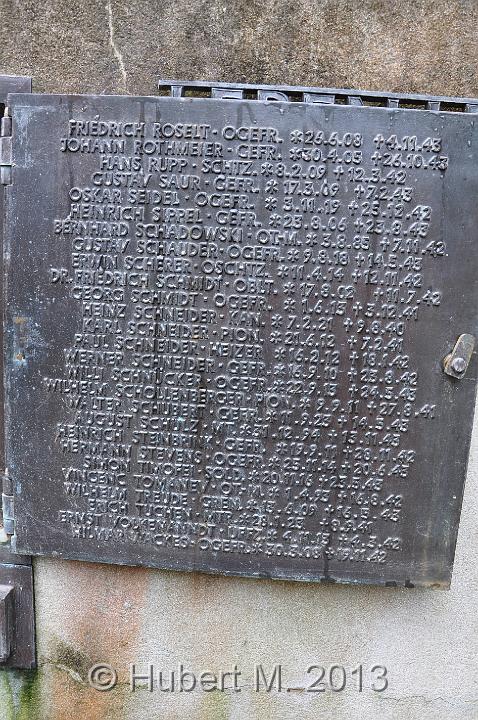 FRIEDRICH ROSELT · OGEFR. *26.6.08 †4.11.43
JOHANN ROTHMEIER · GEFR. *30.4.05 †26.10.43
HANS RUPP · SCHTZ. *8.2.09 †12.3.42
GUSTAV SAUR · GEFR. *17.3.09 †7.2.43
OSKAR SEIDEL · OGEFR. *3.11.19 †25.12.42
HEINRICH SIPPEL · GEFR. *25.8.06 †23.8.43
BERNHARD SCHADOWSKI · OT-M. *5.8.85 †7.11.42
GUSTAV SCHAUDER · OGEFR. *9.8.18 †14.5.43
ERWIN SCHERER · OSCHTZ. *11.4.14 †12.11.42
DR. FRIEDRICH SCHMIDT · OBLT. *17.9.02 †11.7.42
GEORG SCHMIDT · OGEFR. *1.6.15 †5.12.41
HEINZ SCHNEIDER · KAN. *7.2.21 †9.8.40
KARL SCHNEIDER · PION. *21.6.12 †7.2.41
PAUL SCHNEIDER · HEIZER *16.2.12 †18.1.42
WERNER SCHNEIDER · GEFR. *16.9.10 †23.8.42
WILLI SCHNÜCKER · OGEFR. *22.9.13 †24.5.43
WILHELM SCHOLLENBERGER · PION. *9.9.11 †27.8.41
WALTER SCHUBERT · GEFR. *11.9.23 †14.5.43
AUGUST SCHULZ · MT. 12.94 †13.11.43
HEINRICH STEINBRINK · GEFR. *19.9.11 †28.11.42
HERMANN STEVENS · OGEFR. *25.11.14 †20.6.43
SIMON TIMOFEI · SOLD. *20.11.16 †23.5.43
VINCENC TOMANEK · OT-M. *1.4.93 †16.8.42
WILHELM TREUDE
ERICH TUCHEN · MTR.
ERNST
HILMAR WACKES · OGEFR. *30.5.08 †19.11.42
© Hubert M. 2013